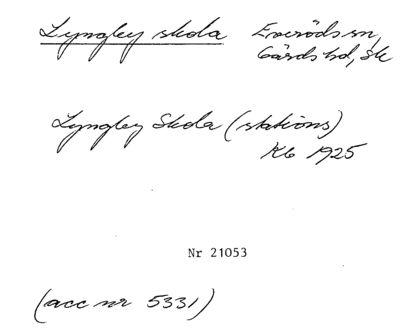 Lyngby skola Everöds sn,
Gärds hd, Sk
Lyngby Skola (stations)
Kb 1925
Nr 21053
(acc nr 5331)